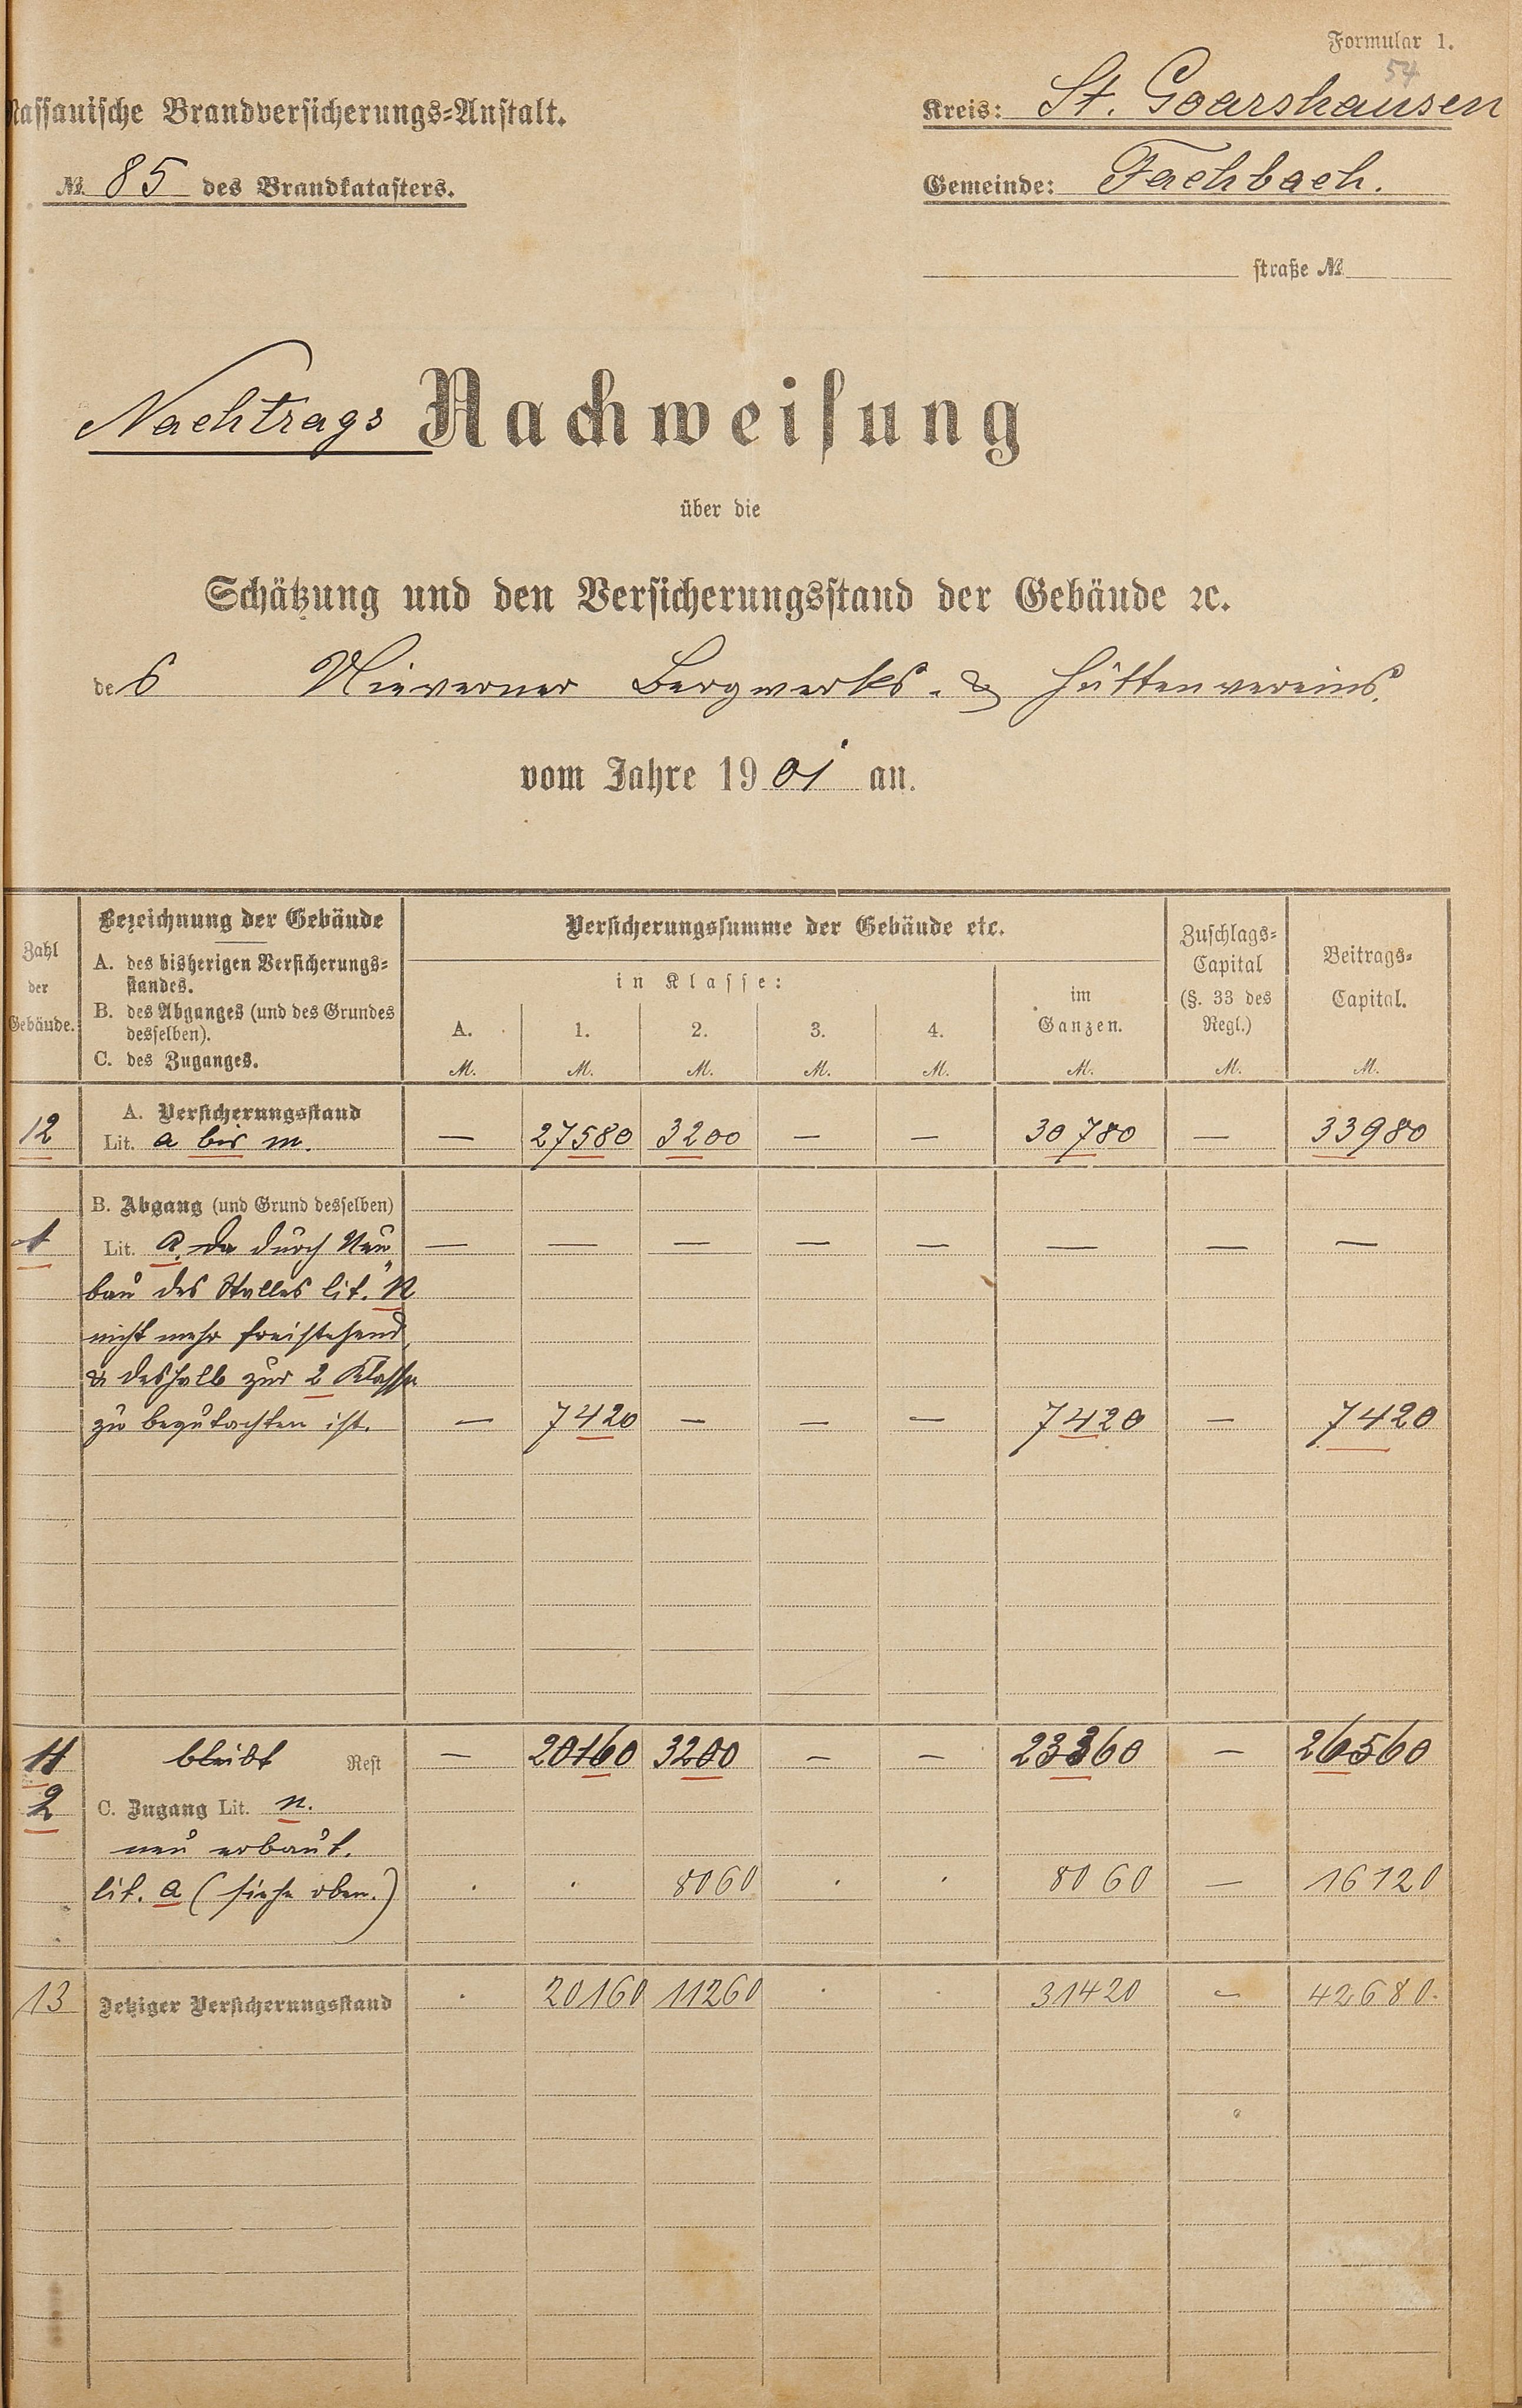 Formular 1.
54
Nassauische Brandversicherungs-Anstalt.
Kreis: St. Goarshausen
№ 85 des Brandkatasters.
Gemeinde: Fachbach.
straße №
Nachtrags Nachweisung
über die
Schätzung und den Versicherungsstand der Gebäude ꝛc.
des Nieverner Bergwerks- & Hüttenvereins.
vom Jahre 1901 an.
Zahl der Gebäude.
Bezeichnung der Gebäude
A. des bisherigen Versicherungs-
standes.
B. des Abganges (und des Grundes
desselben).
C. des Zuganges.
Versicherungssumme der Gebäude etc.
in Klasse:
A. 1. 2. 3. 4.
im Ganzen.
Zuschlags-Capital (§. 33 des Regl.)
Beitrags-Capital.
M. M. M. M. M. M. M. M.
A. Versicherungsstand
12 Lit. a bis m. — 27580 3200 — — 30780 — 33980
B. Abgang (und Grund desselben)
1 Lit. a. da durch Neu — — — — — — — —
bau des Stalles lit. "n
nicht mehr freistehend,
& deshalb zur 2 Klasse
zu begutachten ist. — 7420 — — — 7420 — 7420
11 bleibt Rest — 20160 3200 — — 23360 — 26560
2 C. Zugang Lit. n.
neu erbaut.
lit. a (siehe oben.) . . 8060 . . 8060 — 16120
13 Jetziger Versicherungsstand . 20160 11260 . . 31420 - 42680.